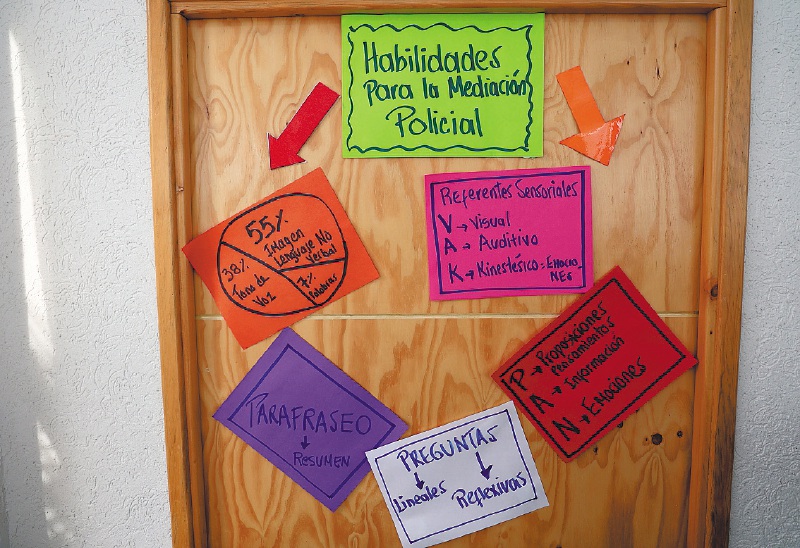 Habilidades
Para la Mediación
Policial
55%
Imagen
Lenguaje No
Verbal
38%
Tono de
Voz
7%
Palabras
Referentes Sensoriales
V → Visual
A → Auditivo
K → Kinestésico = Emocio
nes
P → Proposiciones
Pensamientos
A → Información
N → Emociones
PARAFRASEO
↓
Resumen
PREGUNTAS
↓ ↓
Lineales Reflexivas